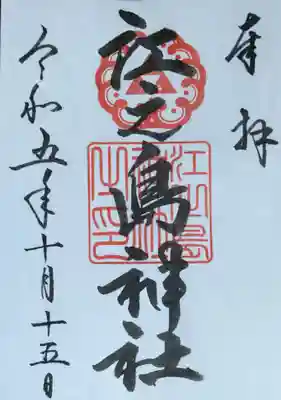 奉拝
江之島神社
令和五年十月十五日